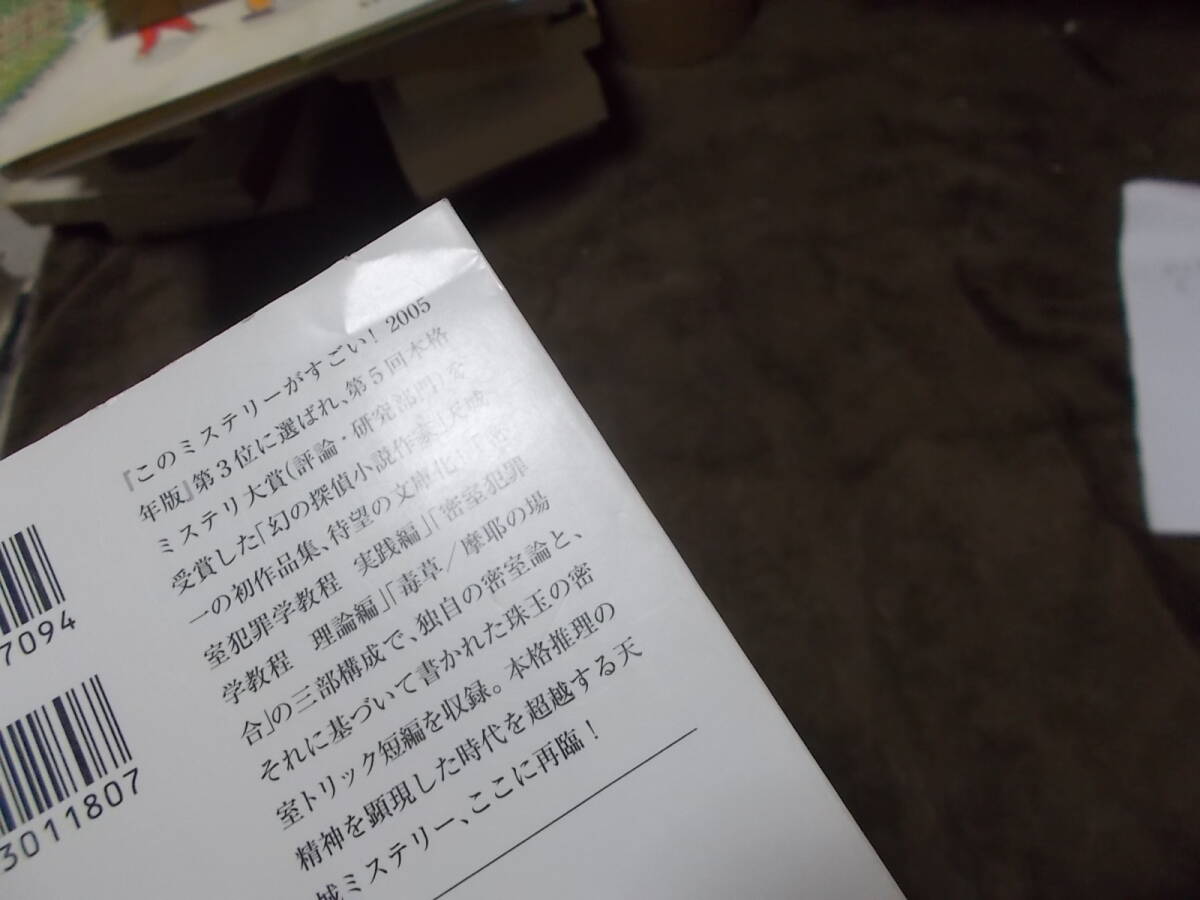 『このミステリーがすごい! 2005
年版』第3位に選ばれ、第5回本格
ミステリ大賞(評論・研究部門)を
受賞した「幻の探偵小説作家」天城
一の初作品集、待望の文庫化!「密
室犯罪学教程 実践編」「密室犯罪
学教程 理論編」「毒草/摩耶の場
合」の三部構成で、独自の密室論と、
それに基づいて書かれた珠玉の密
室トリック短編を収録。本格推理の
精神を顕現した時代を超越する天
城ミステリー、ここに再臨!
7094
3011807